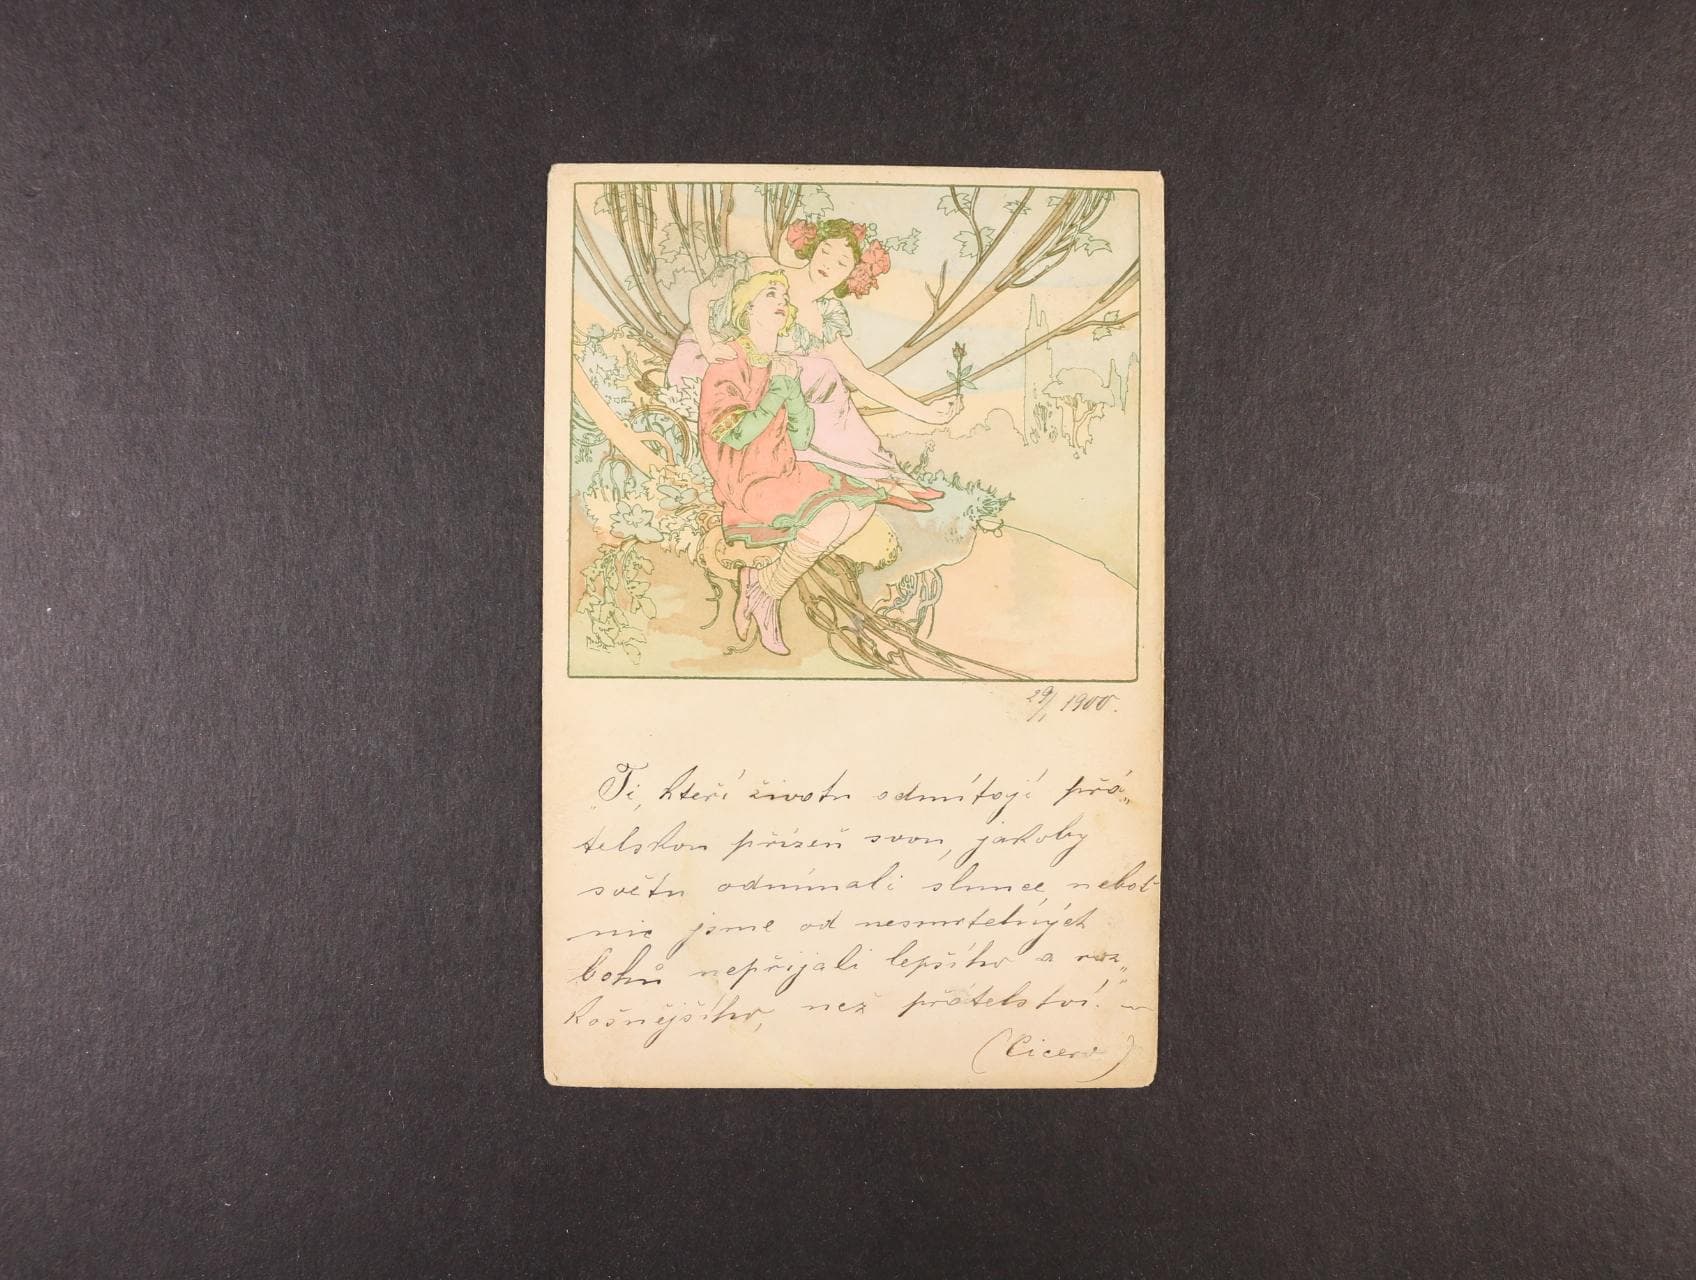 29/1 1900.
„Ti, kteří životu odmítají přá„
telskou přízeň svou, jakoby
světu odnímali slunce, neboť
nic jsme od nesmrtelných
bohů nepřijali lepšího a roz„
košnějšího, než přátelství.“ –
(Cicero)